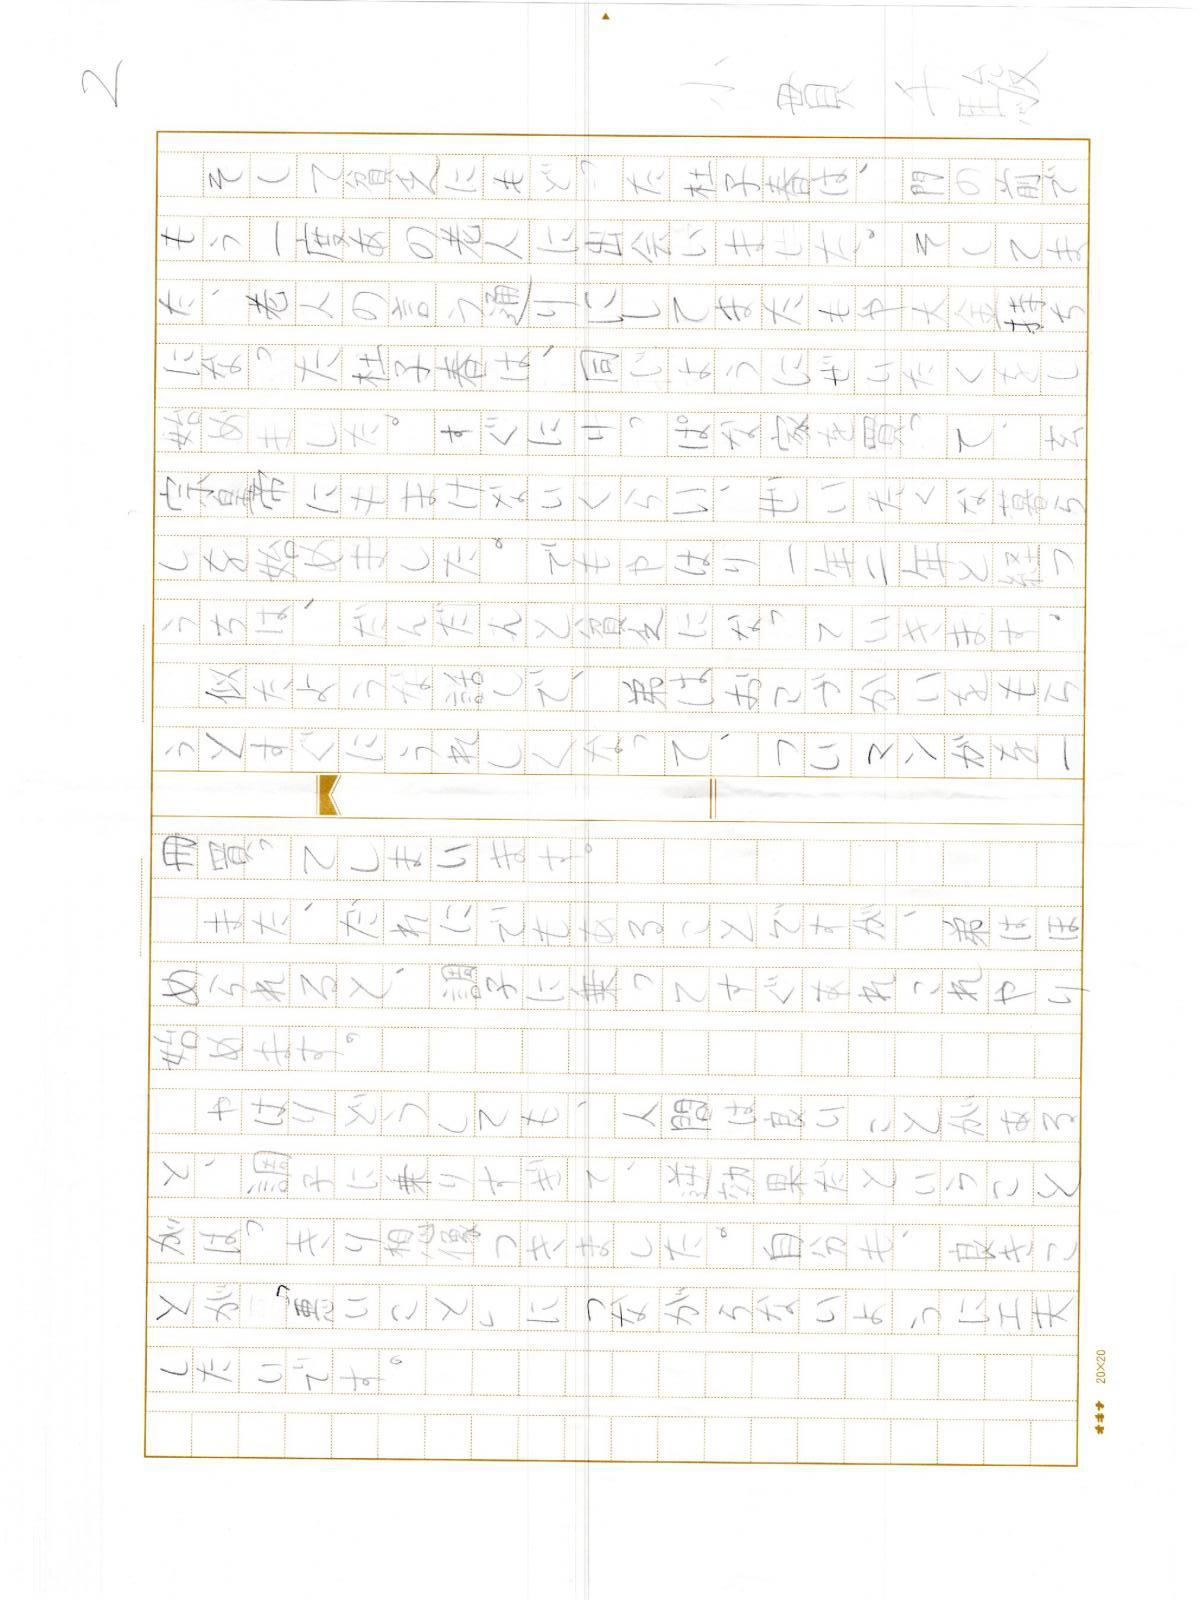 2
小貫千駿
そして貧乏にもどった杜子春は、門の前で
もう一度あの老人に出会いました。そしてま
た、老人の言う通りにしてまたもや大金持ち
になった杜子春は、同じようにぜいたくをし
始めました。すぐにりっぱな家を買って、玄
宗皇帝にもまけないくらい、ぜいたくな暮ら
しを始めました。でもやはり一年二年と経つ
うちは、だんだんと貧乏になっていきます。
似たような話しで、弟はおこづかいをもら
うとすぐにうれしくなって、ついマンガを一
冊買ってしまいます。
また、だれにでもあることですが、弟はほ
められると、調子に乗ってすぐあれこれやり
始めます。
やはりどうしても、人間は良いことがある
と、調子に乗りすぎて、逆効果だということ
がはっきり想像つきました。自分も、良きこ
とが「悪いこと」につながらないように工夫
したいです。
20×20